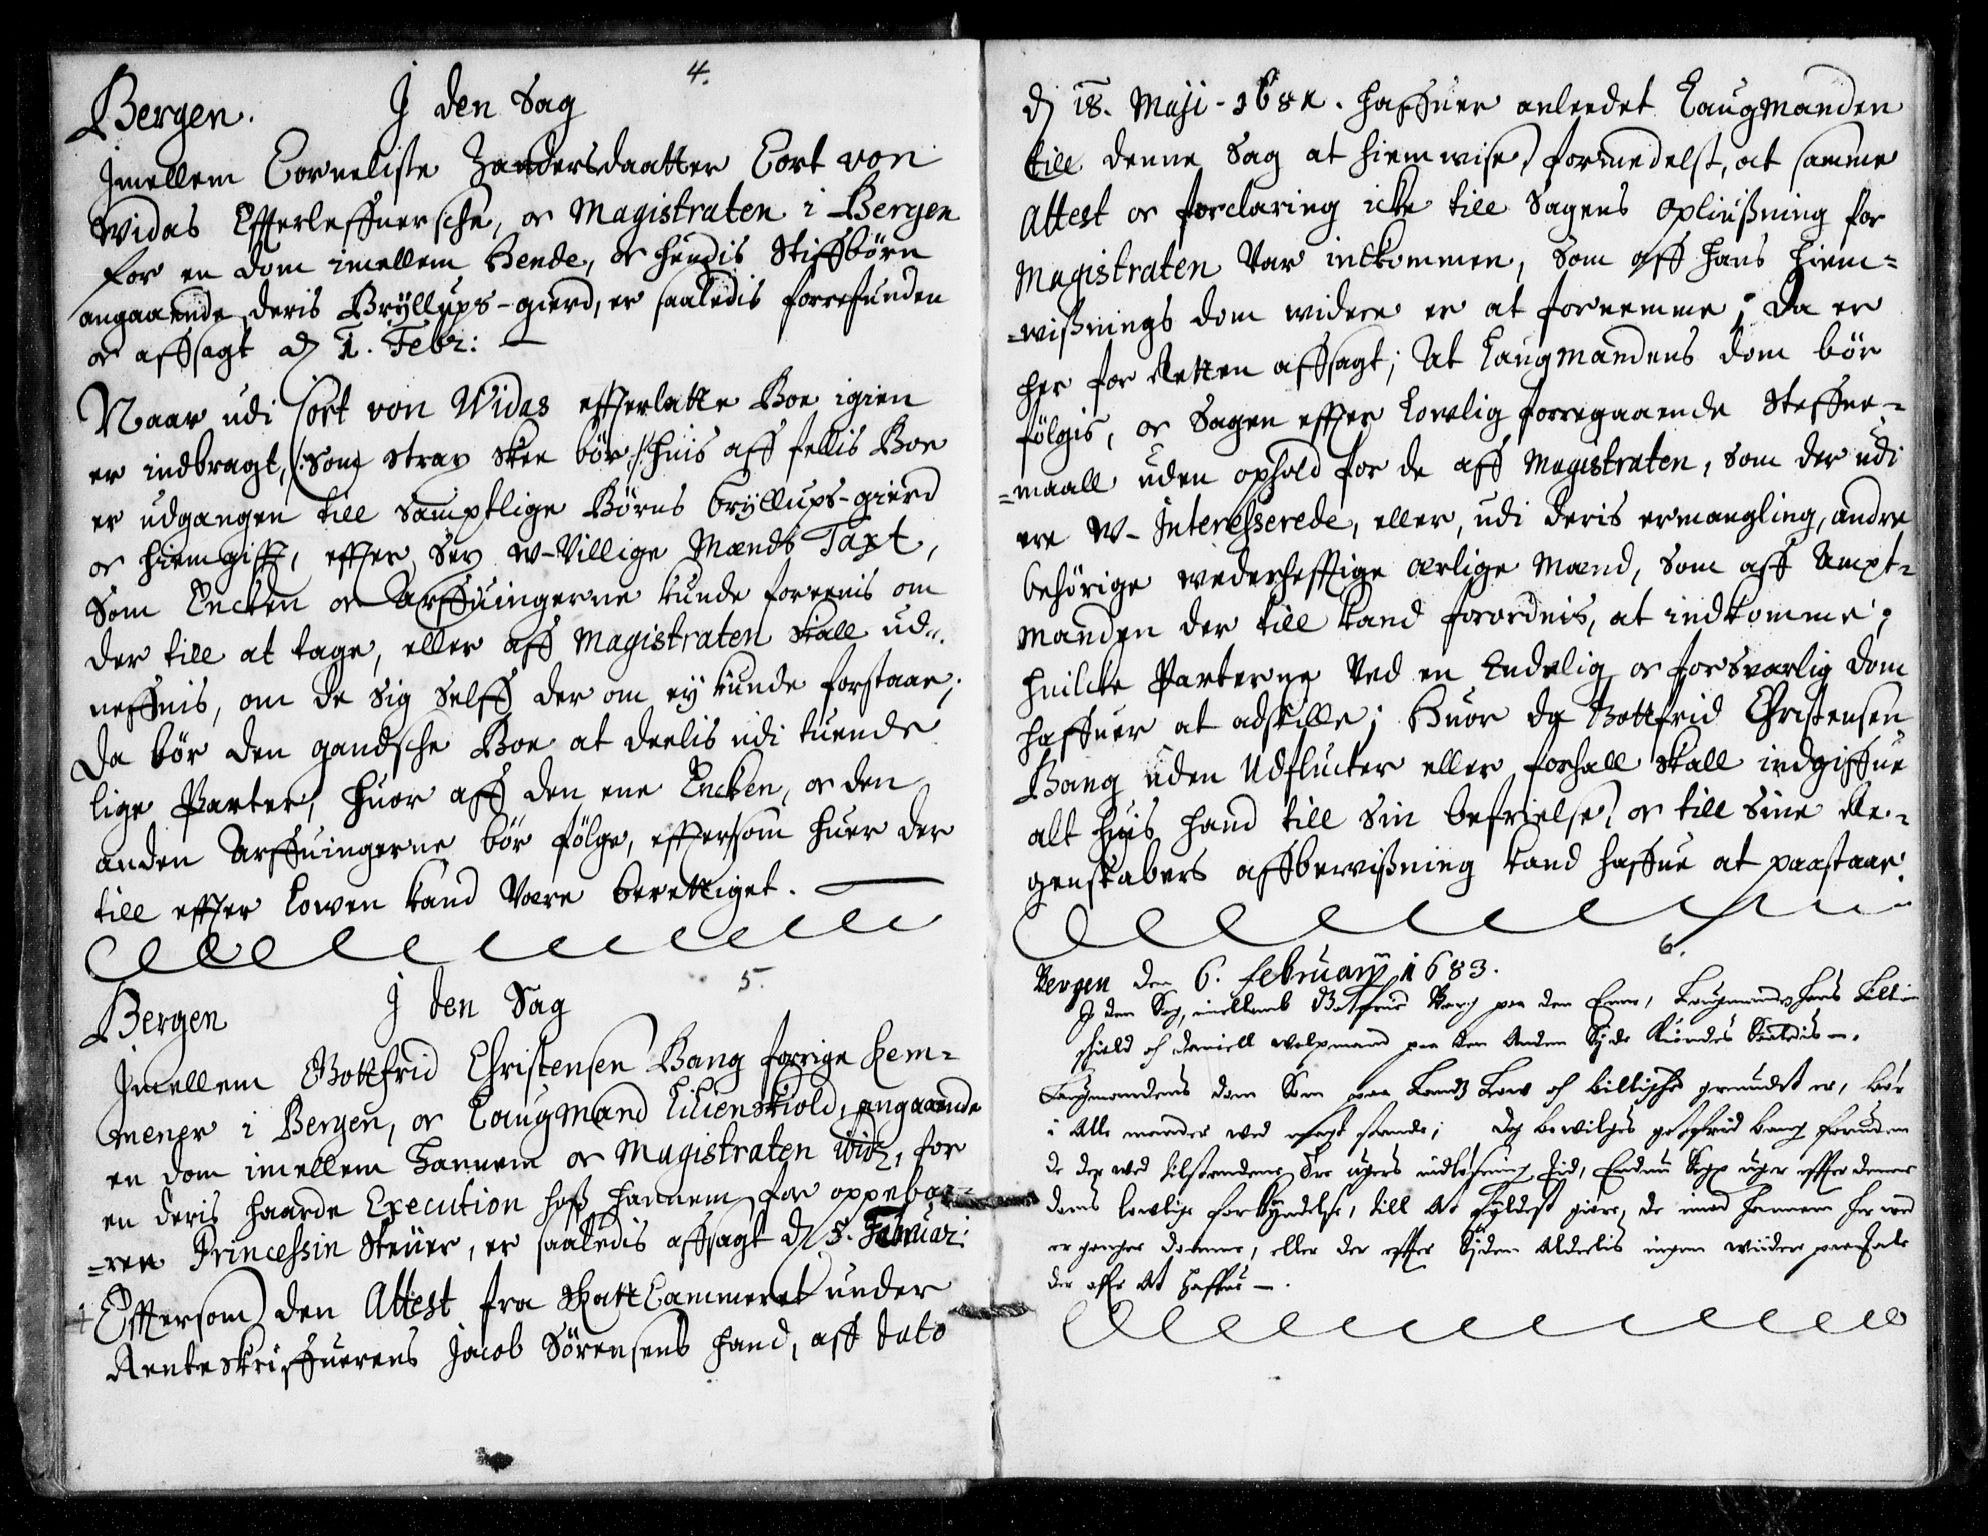 4.
Bergen. J den Sag
Jmellem Corneliste Zandersdaatter Cort von
Widas Efterleffuersche, oc Magistraten i Bergen
for en dom imellem Hende, oc hendis Stiffbörn
angaaende deris Brÿllups-gierd, er saaledis forrefunden
oc affsagt dj 1. Febr:
Naar udi Cort von Widas efterlatte Boe igien
er indbragt, /:Som strax skee bör:/ huis aff fellis Boe
er udgangen till Samptlige Börns brÿllups-gierd
oc hiemgifft, effter Sex w-villige Mænds Taxt,
Som Encken oc Arffuingerne kunde foreenis om
der till at tage, eller aff Magistraten skall ud-
neffnis, om de Sig Selff der om ey kunde forstaae;
Da bör den gandsche Boe at deelis udi tuende
lige Parter, huor aff den ene Encken, oc den
anden Arffuingerne bör fölge, efftersom huer der
till effter Lowen kand være berettiget.
5.
Bergen J den Sag
Jmellem Gottfrid Christensen Bang forrige Kem-
mener i Bergen, oc Laugmand Lilienskiold, angaaende
en dom imellem Hannem oc Magistraten ibid, for
en deris haarde Execution hoß hannem for oppebær-
=ren Princessin Steuer, er saaledis affsagt dj 5. Februar:
Efftersom den Attest fra SkattCammeret under
Renteskriffuerens Jacob Sörensens hand, aff dato
dj 18. Maji - 1682. haffuer anleedet Laugmanden
till denne Sag at hiemwise, formedelst, at samme
Attest oc forclaring icke till Sagens Opliußning for
Magistraten var indkommen, Som aff hans hiem=
=wißnings dom widere er at fornemme; Da er
her for Retten affsagt; At Laugmandens dom bör
fölgis, oc Sagen effter Lowlig forregaaende Steffne-
=maall uden ophold for de aff Magistraten, Som der udi
ere W-Interesserede, eller, udi deris ermangling, andre
behörige wederhefftige ærlige Mænd, Som aff Ampt-
manden der till kand forordnis, at indkomme;
huilcke Parterne ved en Endelig oc forsvarlig dom
haffuer at adskille; Huor da Gottfrid Christensen
Bang uden Udflucter eller forhall skall indgiffue
alt huis hand till Sin befrielse, oc till Sine Re-
genskabers affbewißning kand haffue at paastaae.
6.
Bergen den 6. februarij 1683.
J den Sag, imellemb Gotfrid Bang paa den Eene, Laugmand Hans Lillien
schiold oc Daniell Wolpmand paa den Anden Syde Kiendes Saaledis -.
Laugmandens dom Som paa Landtz Low oc billighed grundet er, bör
i Alle maader wed magt stande; Dog bewilges gotfrid bang foruden
de der wed tilstendene Tre ugers indlösning tid, Endnu Sex uger effter denne
doms lowlige forkÿndelse, till At fÿldest giöre, de imod hannem her wed
er gangne Domme, eller der effter Siden Alldeelis ingen widere paatale
der effter At haffue -.